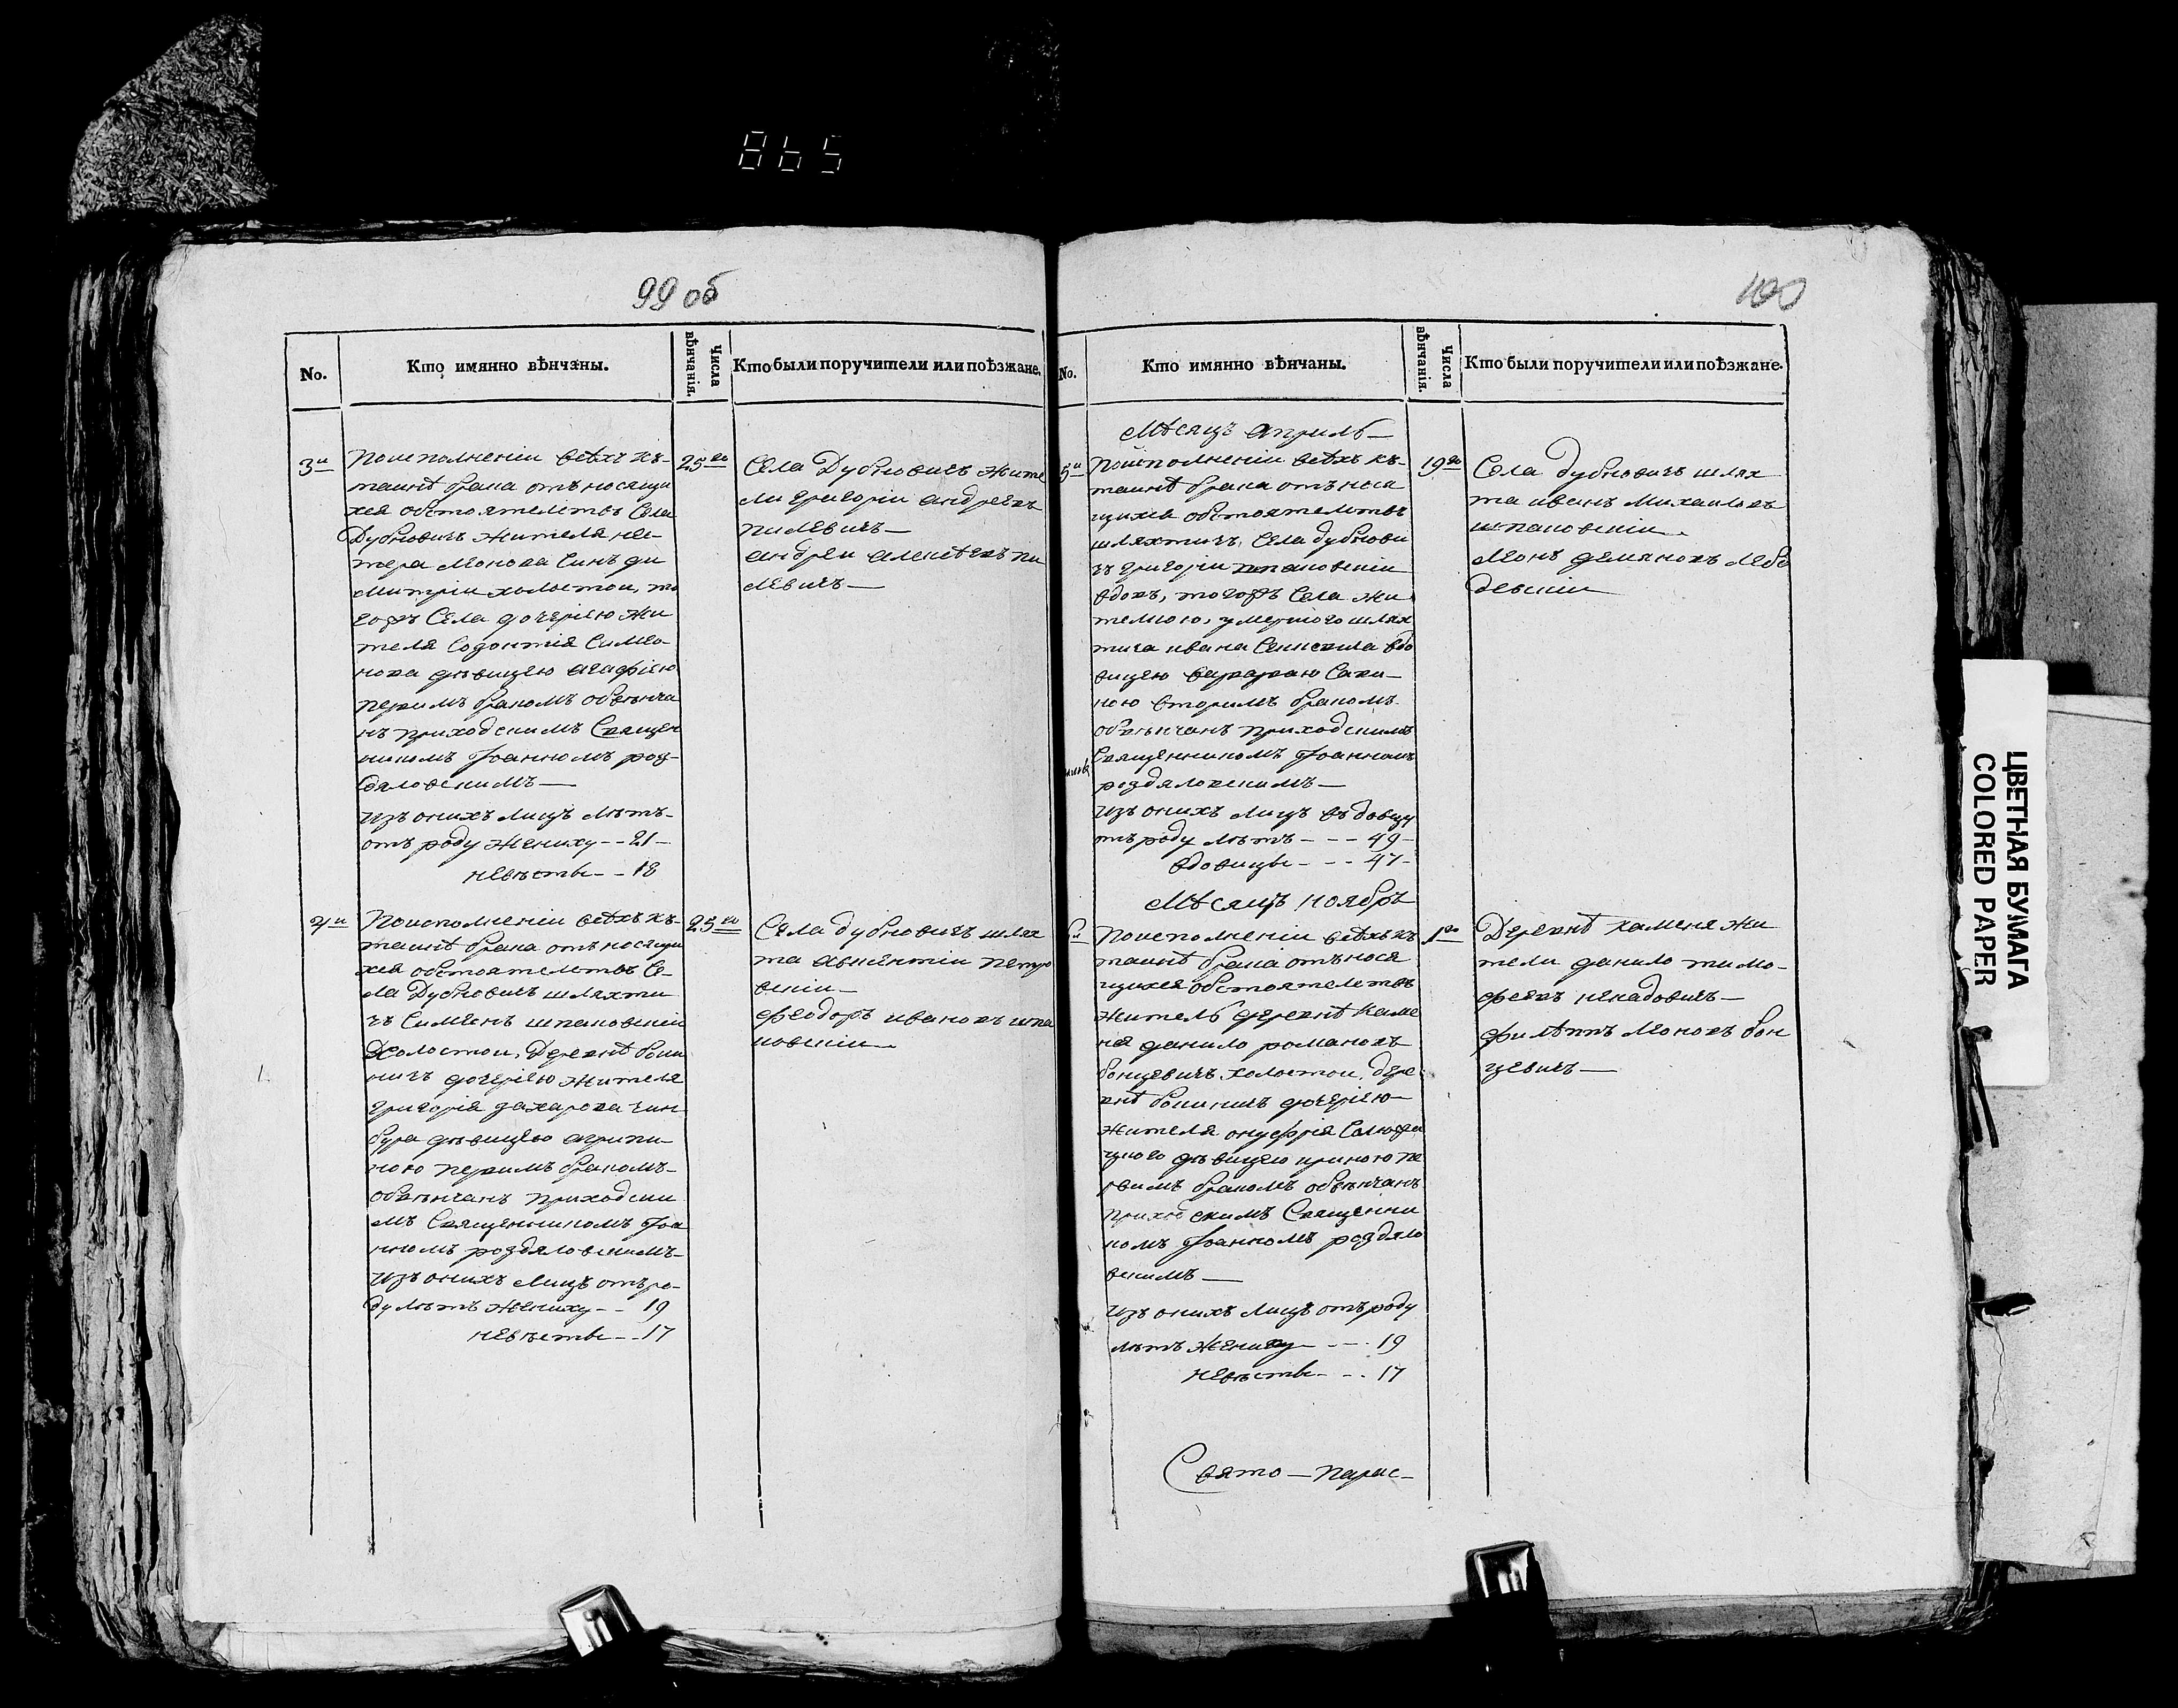 865
99 об
No.
Кто имянно вѣнчаны.
Числа вѣнчанія.
Кто были поручители или поѣзжане.
3й
Поисполненіи всѣхъ къ
таинѣ брака отъносящи
хся обстоятелствъ Села
Дубновичъ жителя нес
тера Леонова Синъ ди
митрій холостои, то
гожъ Села дочерію жи
теля Созонтія Симео
нова дѣвицею агафіею
первимъ бракомъ обвѣнча
нъ приходскимъ Священ
никомъ Іоанномъ роз
дяловскимъ
Изъ онихъ лицъ лѣтъ
отъ роду жениху - - 21 -
невѣстѣ - - 18
25го
Села Дубновичъ жите
ли григоріи андреевъ
пилевичъ
андреи алексѣевъ пи
левичъ
4й
Поисполненіи всѣхъ къ
таинѣ брака отъносящи
хся обстоятелствъ Се
ла Дубновичъ шляхти
чъ Симеонъ шпаковскіи
Холостои, Деревнѣ боки
ничъ дочерію жителя
григорія захарова чин
бура дѣвицею агрипи
ною первимъ бракомъ
обвѣнчанъ приходски
мъ Священникомъ Іоа
нномъ роздяловскимъ
Изъ онихъ лицъ отъ ро
ду лѣтъ жениху - - 19
невѣстѣ - - 17
25го
Села дубновичъ шлях
та авксентіи петро
вскіи
феодоръ ивановъ шпа
ковскіи
100
No.
Кто имянно вѣнчаны.
Числа вѣнчанія.
Кто были поручители или поѣзжане.
Мѣсяцъ априль
5й
Поисполненіи всѣхъ къ
таинѣ брака отъносѧ
щихся обстоятелствъ
шляхтичъ, Села дубнови
чъ григоріи шпаковскіи
вдовъ, тогожъ Села жи
телкою, умершого шлях
тича ивана вдо
вицею варварою
ною вторимъ бракомъ
обвѣнчанъ приходскимъ
Священникомъ Іоанномъ
роздяловскимъ
Изъ онихъ лицъ въдовцу
тъ роду лѣтъ - - - 49 -
вдовицѣ - - - 47 -
19го
Села дубновичъ шлях
та иванъ Михаиловъ
шпаковскіи
Леонъ демяновъ лебе
девскіи
Мѣсяцъ ноябрь
6й
Поисполненіи всѣхъ къ
таинѣ брака отънося
щихся обстоятелствъ
житель деревнѣ каме
ня данило романовъ
бонцевичъ холостои, дере
внѣ бокиничъ дочерію
жителя онуфрія
дѣвицею ириною пе
рвимъ бракомъ обвѣнчанъ
приходскимъ Священни
комъ Іоанномъ роздяло
вскимъ
Изъ онихъ лицъ отъ роду
лѣтъ жениху - - - 19
невѣстѣ - - . 17
1го
Деревнѣ каменя жи
тели данило тимо
феевъ ненадовичъ
филѣппъ Леоновъ бон
цевичъ
Свято - парас
ЦВЕТНАЯ БУМАГА
COLORED PAPER